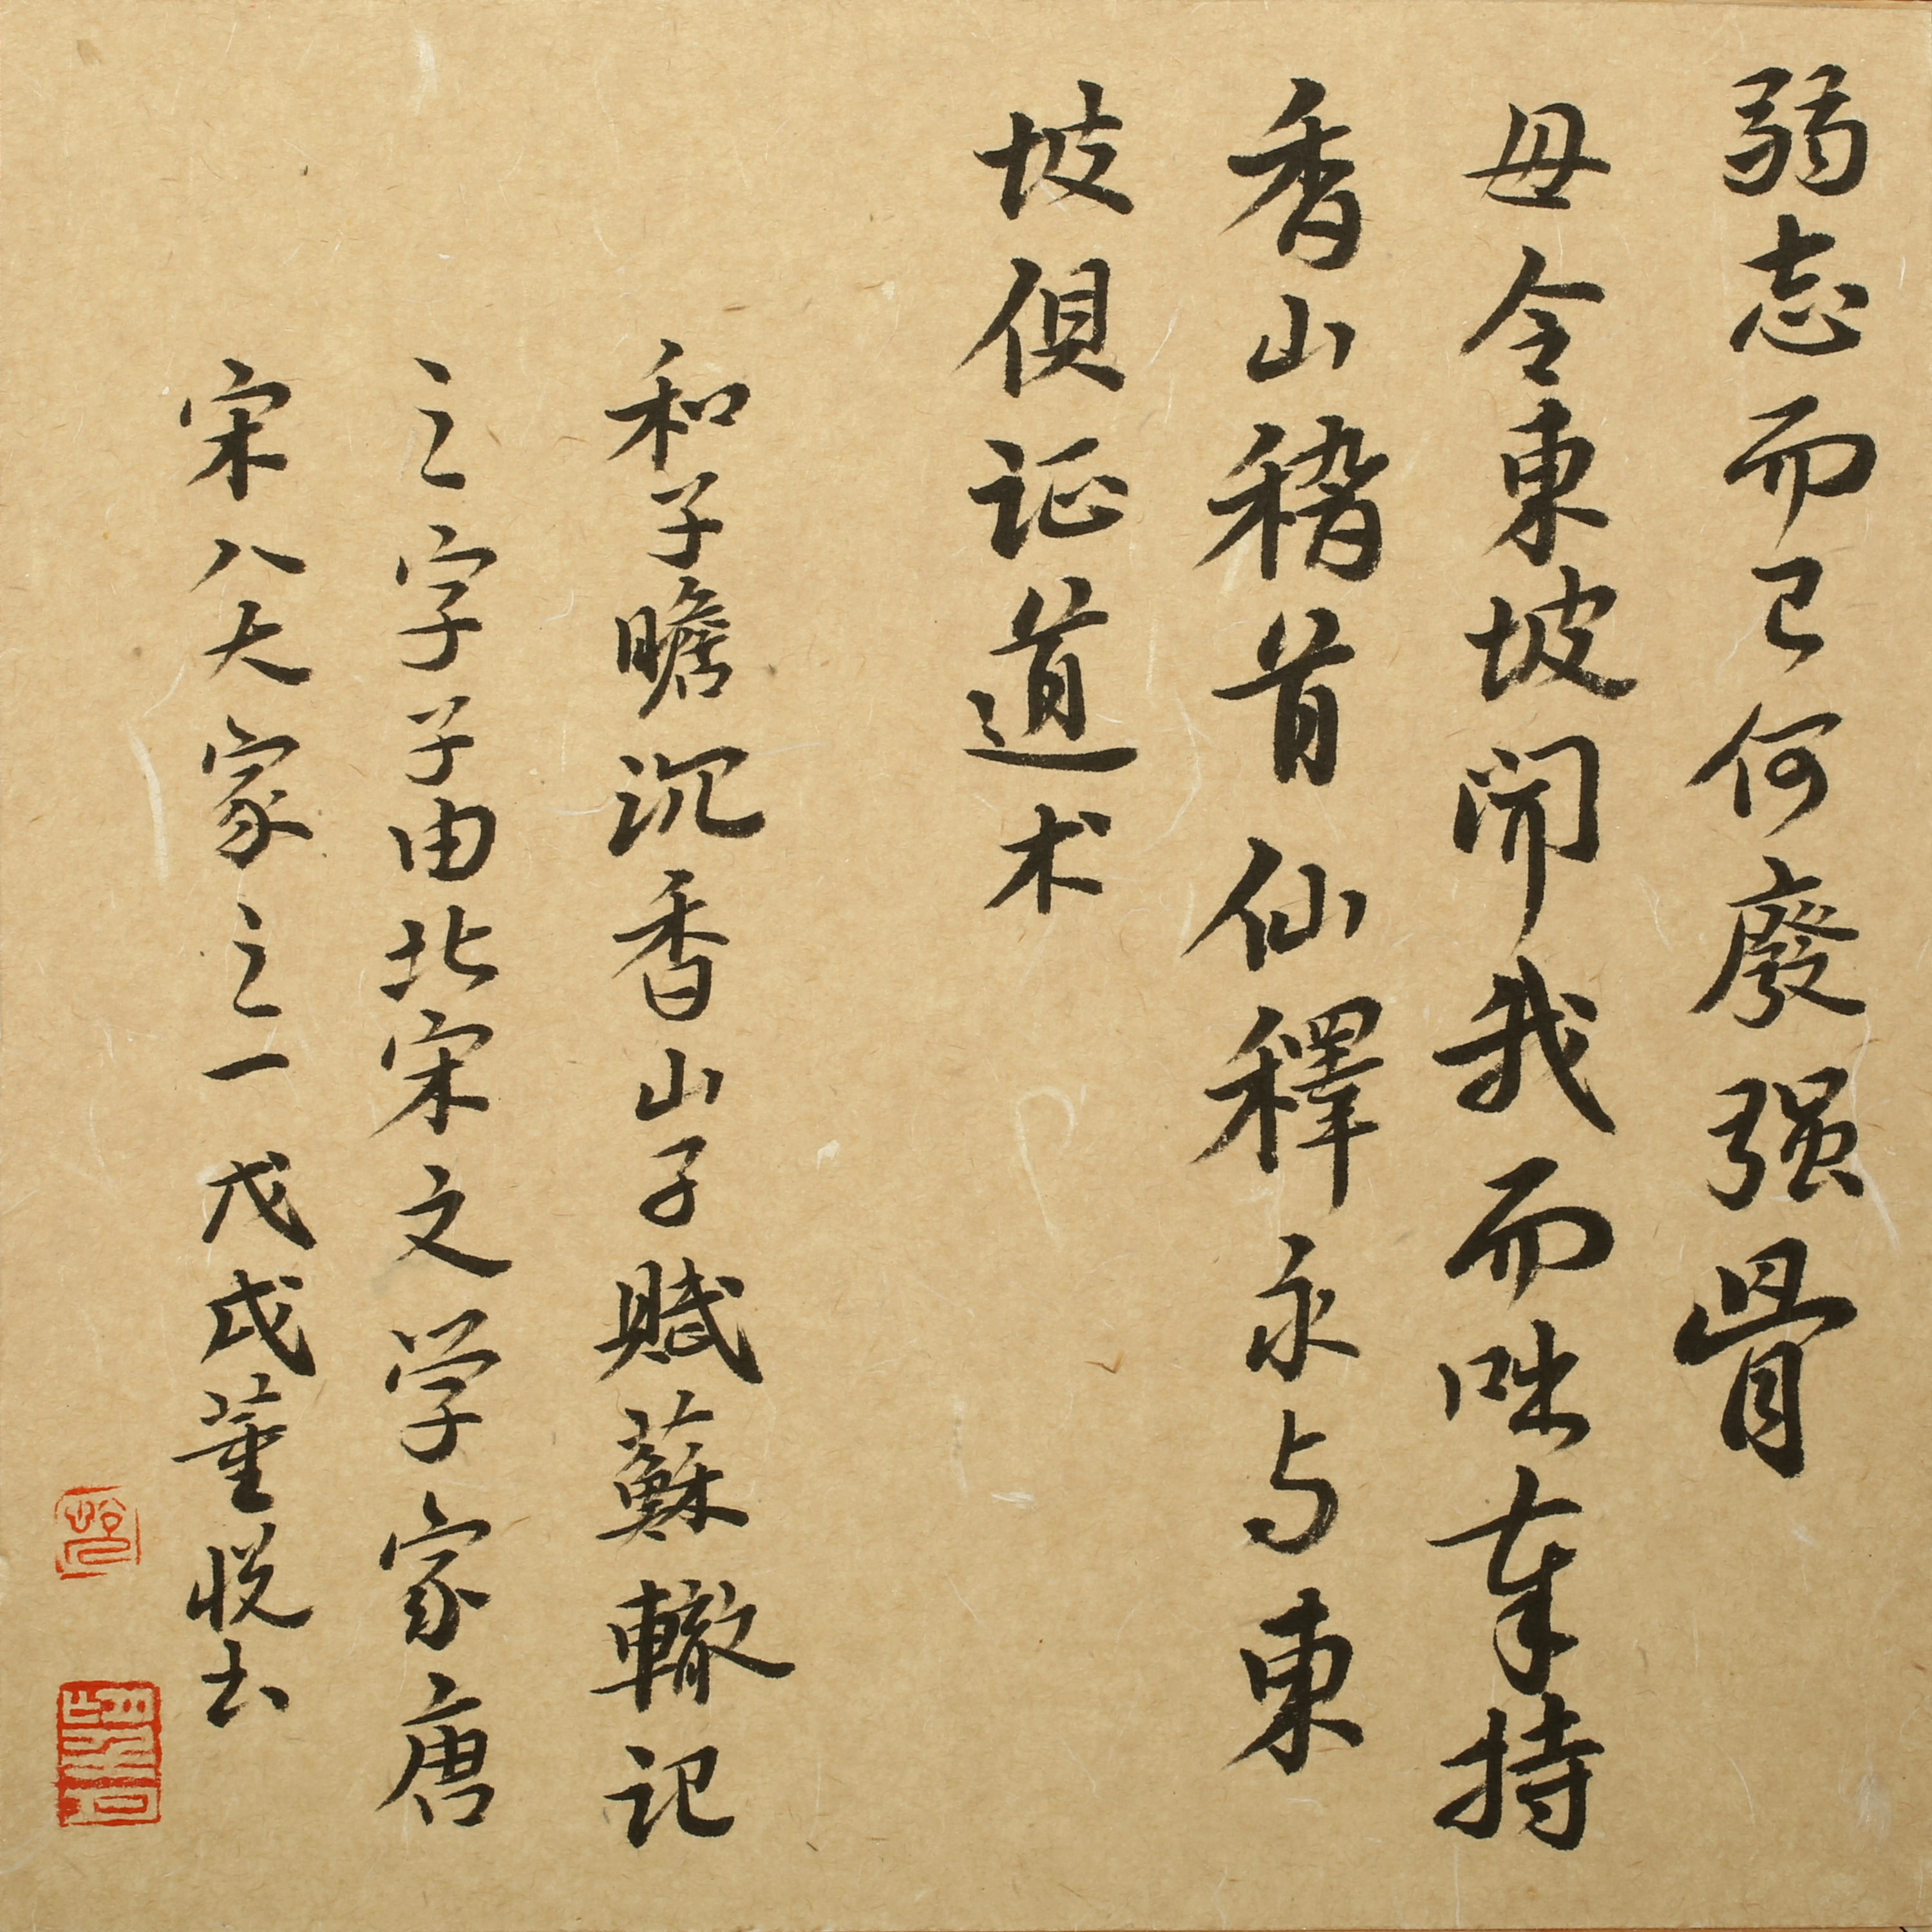 弱志而已何廢强骨
毋令東坡闻我而咄奉持
香山稽首仙釋永与東
坡俱证道术
和子瞻沉香山子賦蘇轍记
之字子由北宋文学家唐
宋八大家之一戊戌董悦书